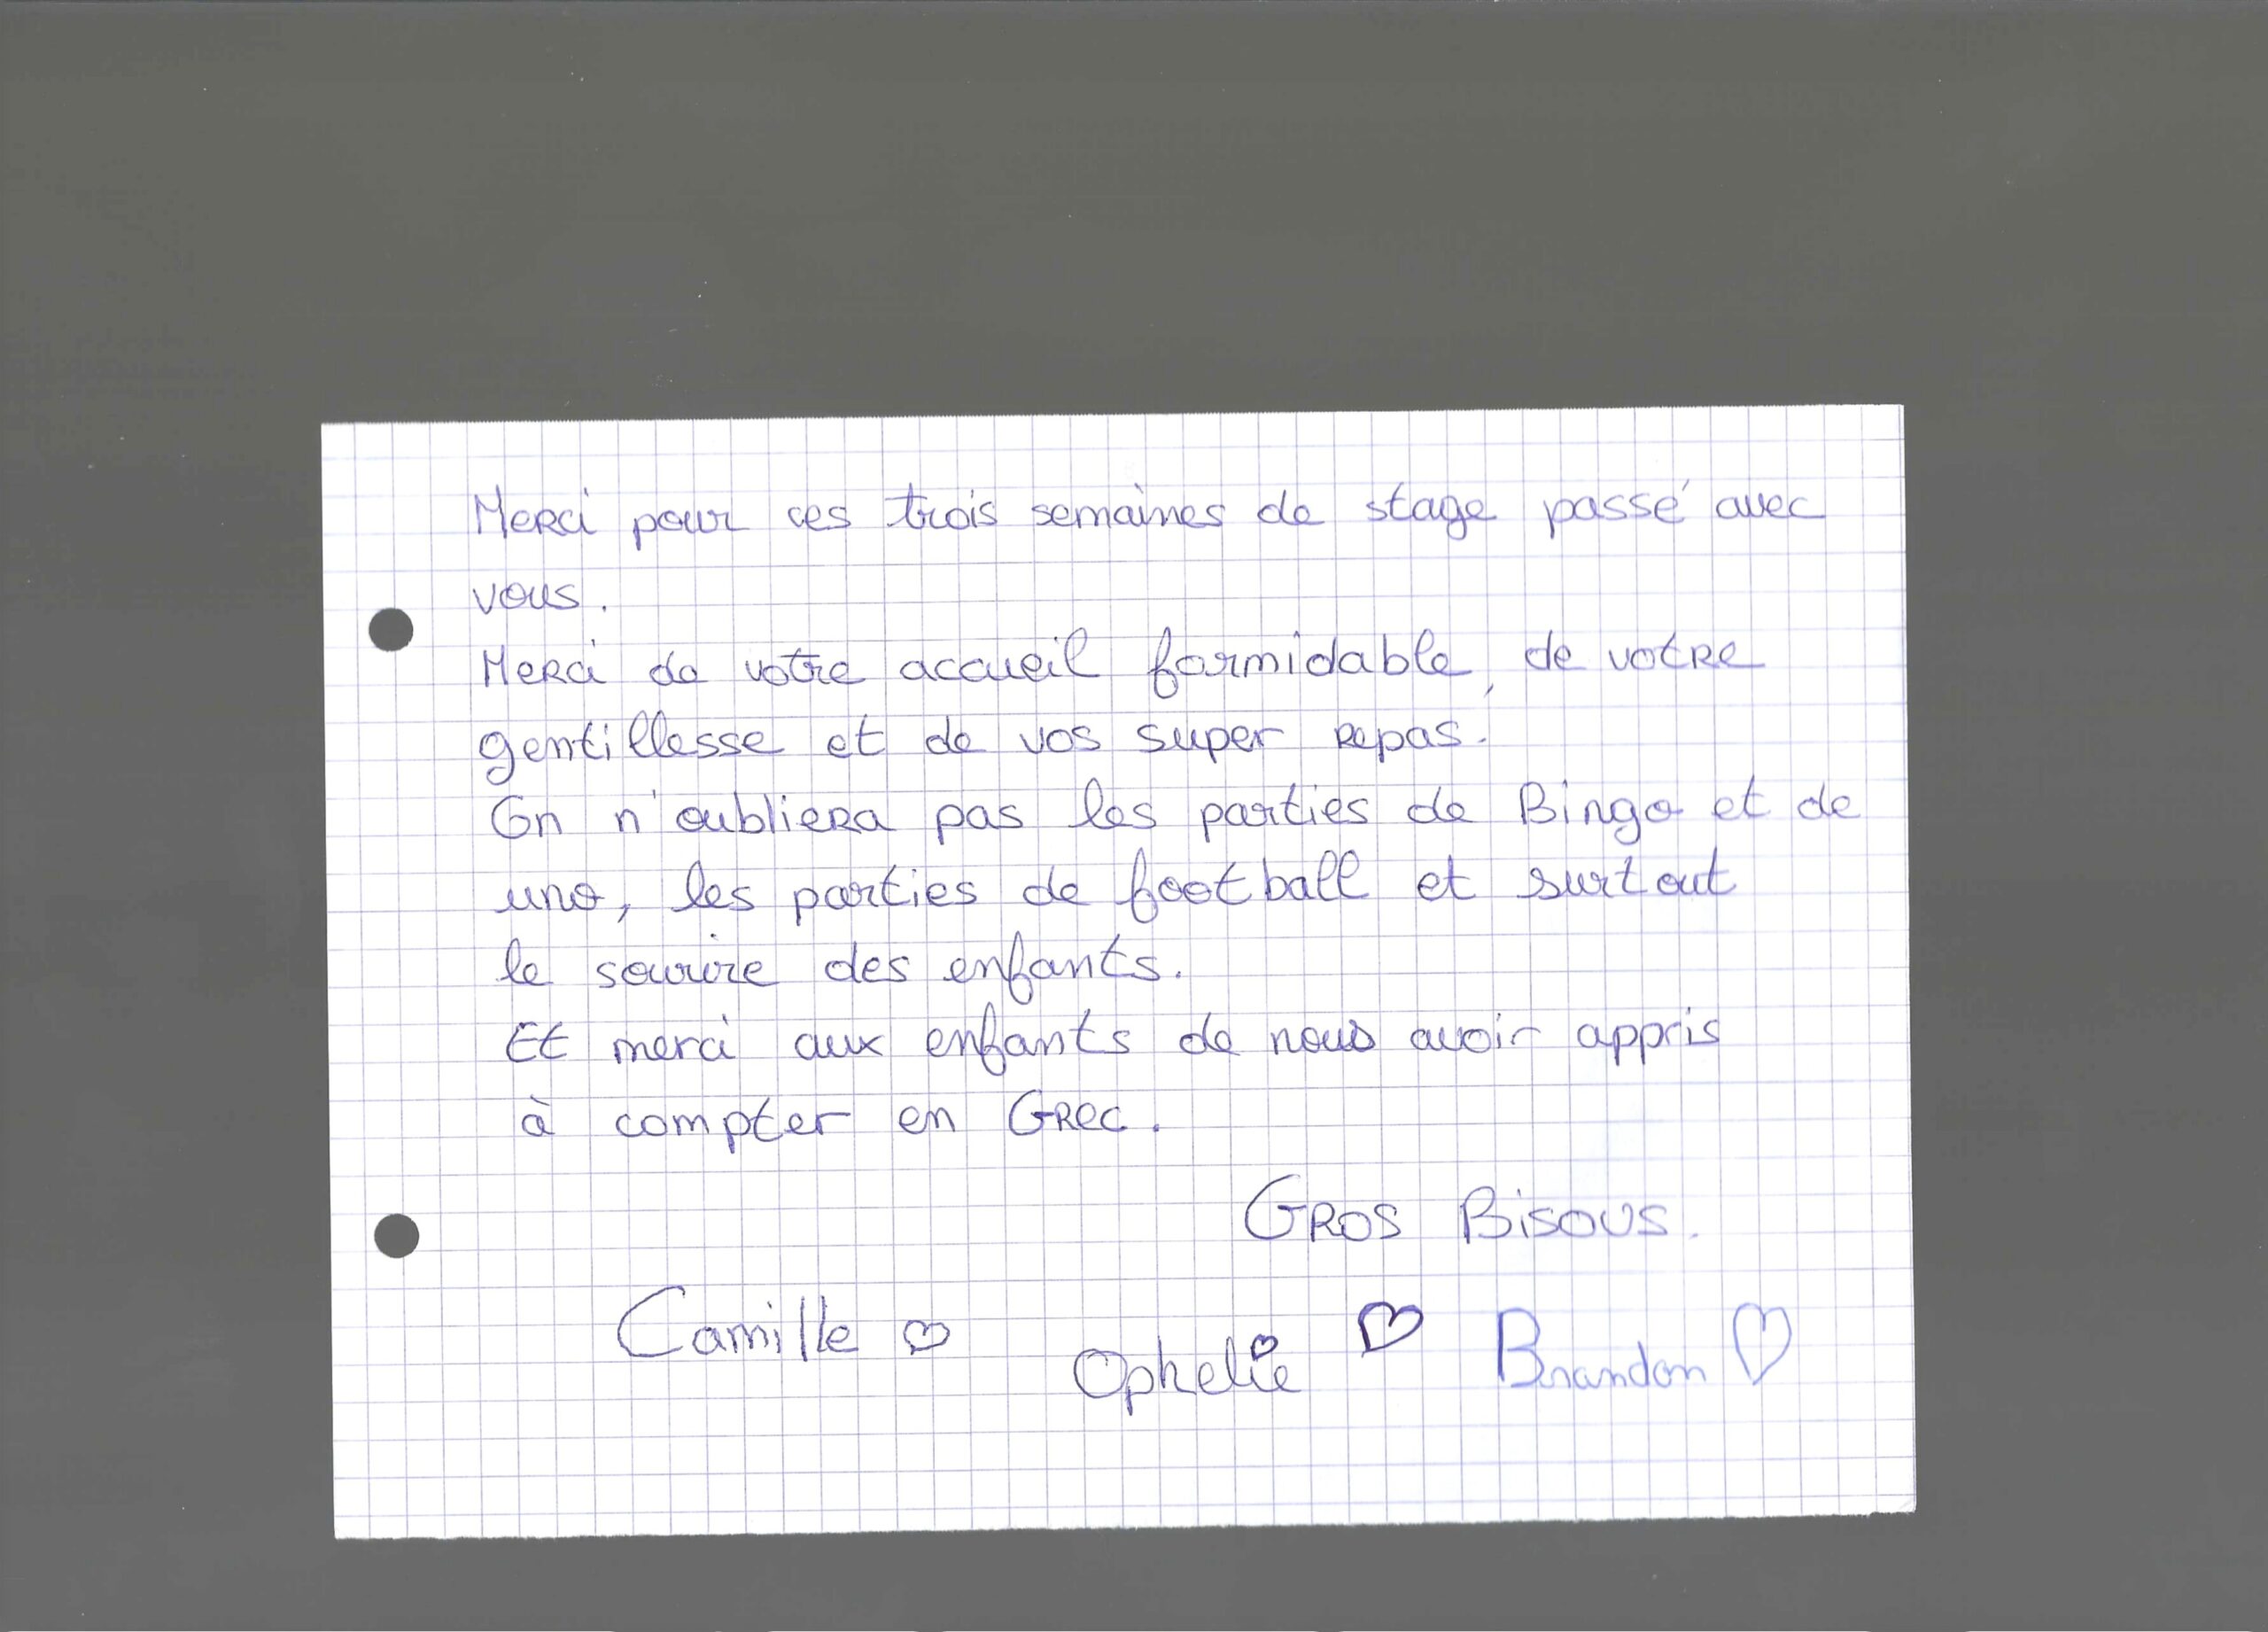 Merci pour ces trois semaines de stage passé avec
vous.
Merci de votre accueil formidable, de votre
gentillesse et de vos super repas.
On n'oubliera pas les parties de Bingo et de
uno, les parties de football et surtout
le sourire des enfants.
Et merci aux enfants de nous avoir appris
à compter en Grec.
GROS BISOUS.
Camille ♡ Ophelie ♡ Brandon ♡